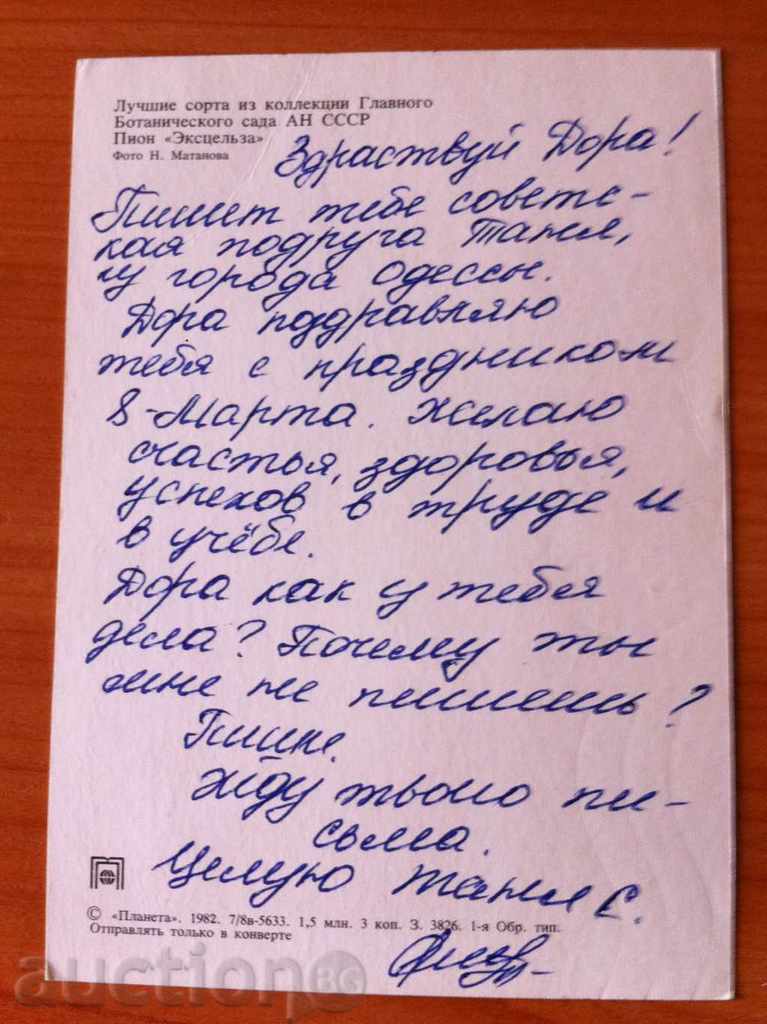 Лучшие сорта из коллекции Главного
Ботанического сада АН СССР
Пион «Эксцельза»
Фото Н. Матанова
Здраствуй Дора!
Пишет тебе советс-
кая подруга Таня,
из города Одессы.
Дора поздравляю
тебя с праздником
8-Марта. Желаю
счастья, здоровья,
успехов в труде и
в учёбе.
Дора как у тебя
дела? Почему ты
мне не пишешь?
Пиши.
Жду твоего пи-
сьма.
Целую Таня С.
© «Планета». 1982. 7/8в-5633. 1,5 млн. 3 коп. З. 3826. 1-я Обр. тип.
Отправлять только в конверте
kolekcionerBG